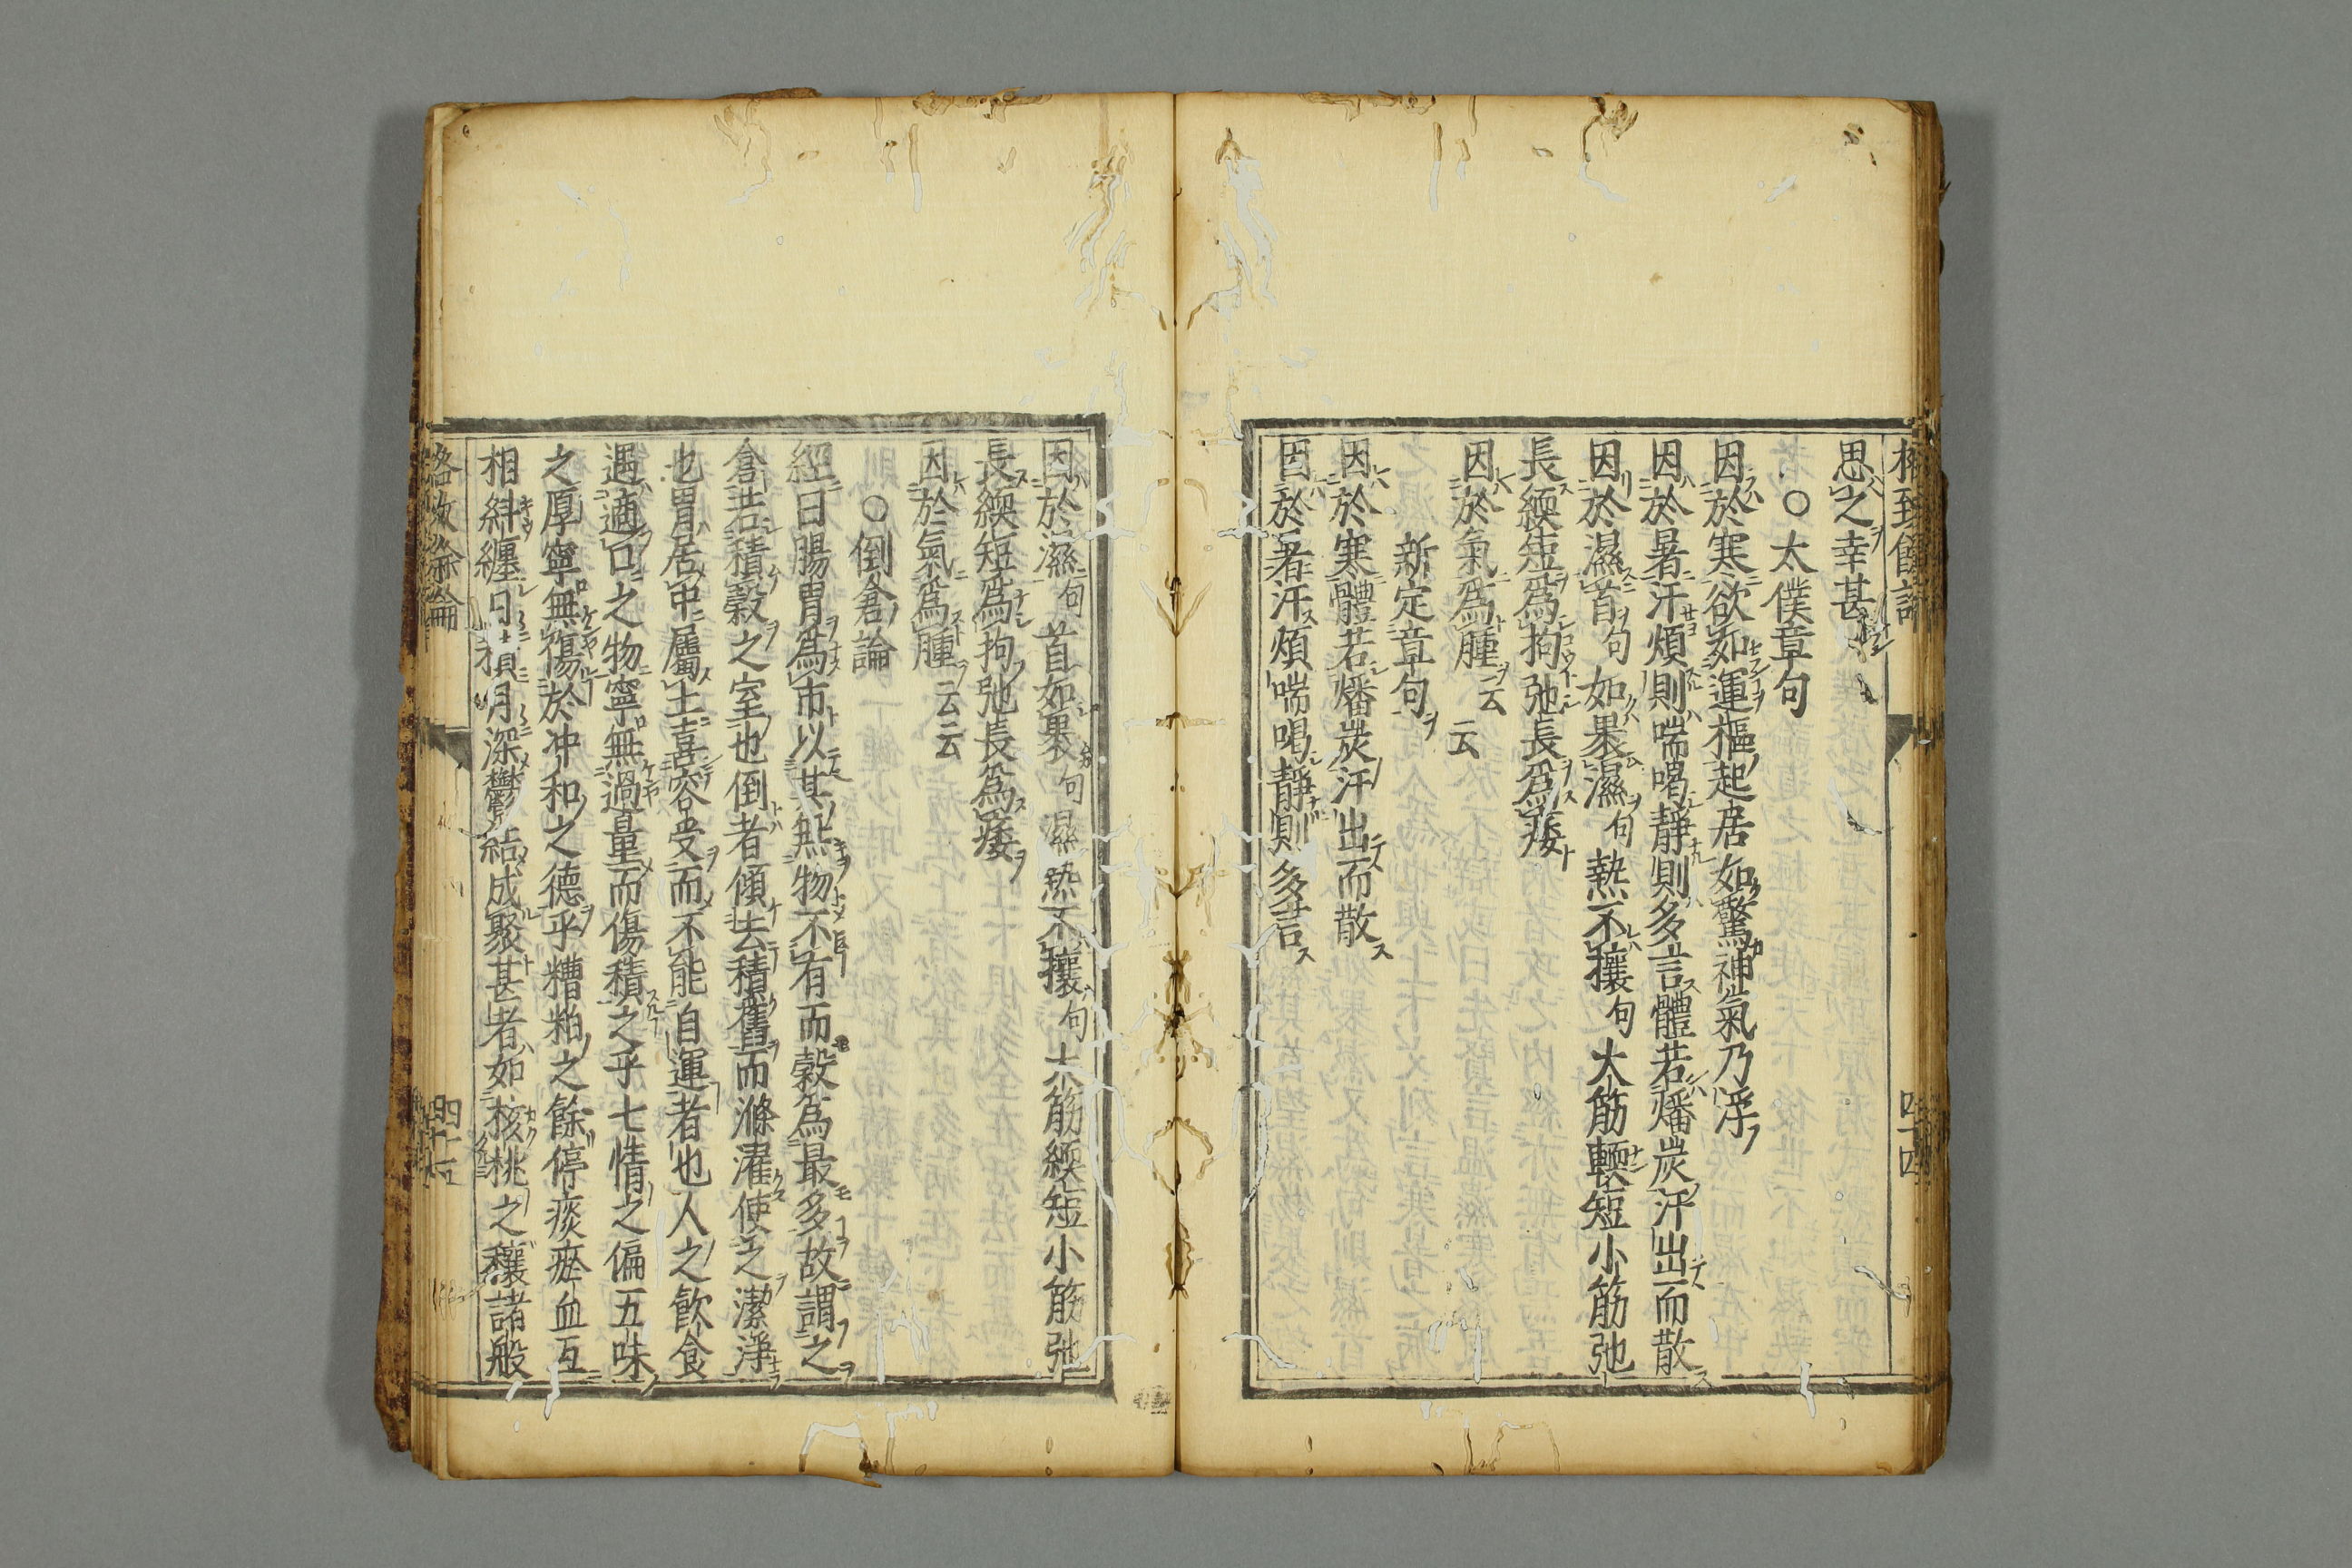 格致餘論
四十四
思之幸甚
○太僕章句
因於寒欲如運樞起居如驚神氣乃浮
因於暑汗煩則喘喝靜則多言體若燔炭汗出而散
因於濕首句如裹濕句熱不攘句大筋緛短小筋弛
長緛短為拘弛長為痿
因於氣為腫云云
新定章句
因於寒體若燔炭汗出而散
因於暑汗煩喘喝靜則多言
因於濕句首如裹句濕熱不攘句大筋緛短小筋弛
長緛短為拘弛長為痿
因於氣為腫云云
○倒倉論
經曰腸胃為市以其無物不有而穀為最多故謂之
倉若積穀之室也倒者傾去積舊而滌濯使之潔淨
也胃居中屬土喜容受而不能自運者也人之飲食
遇適口之物寧無過量而傷積之乎七情之偏五味
之厚寧無傷於冲和之德乎糟粕之餘停痰瘀血互
相糾纏日積月深鬱結成聚甚者如核桃之穰諸般
格致餘論
四十五